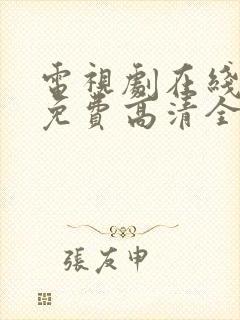 電視劇在綫
免費高清全
張友申